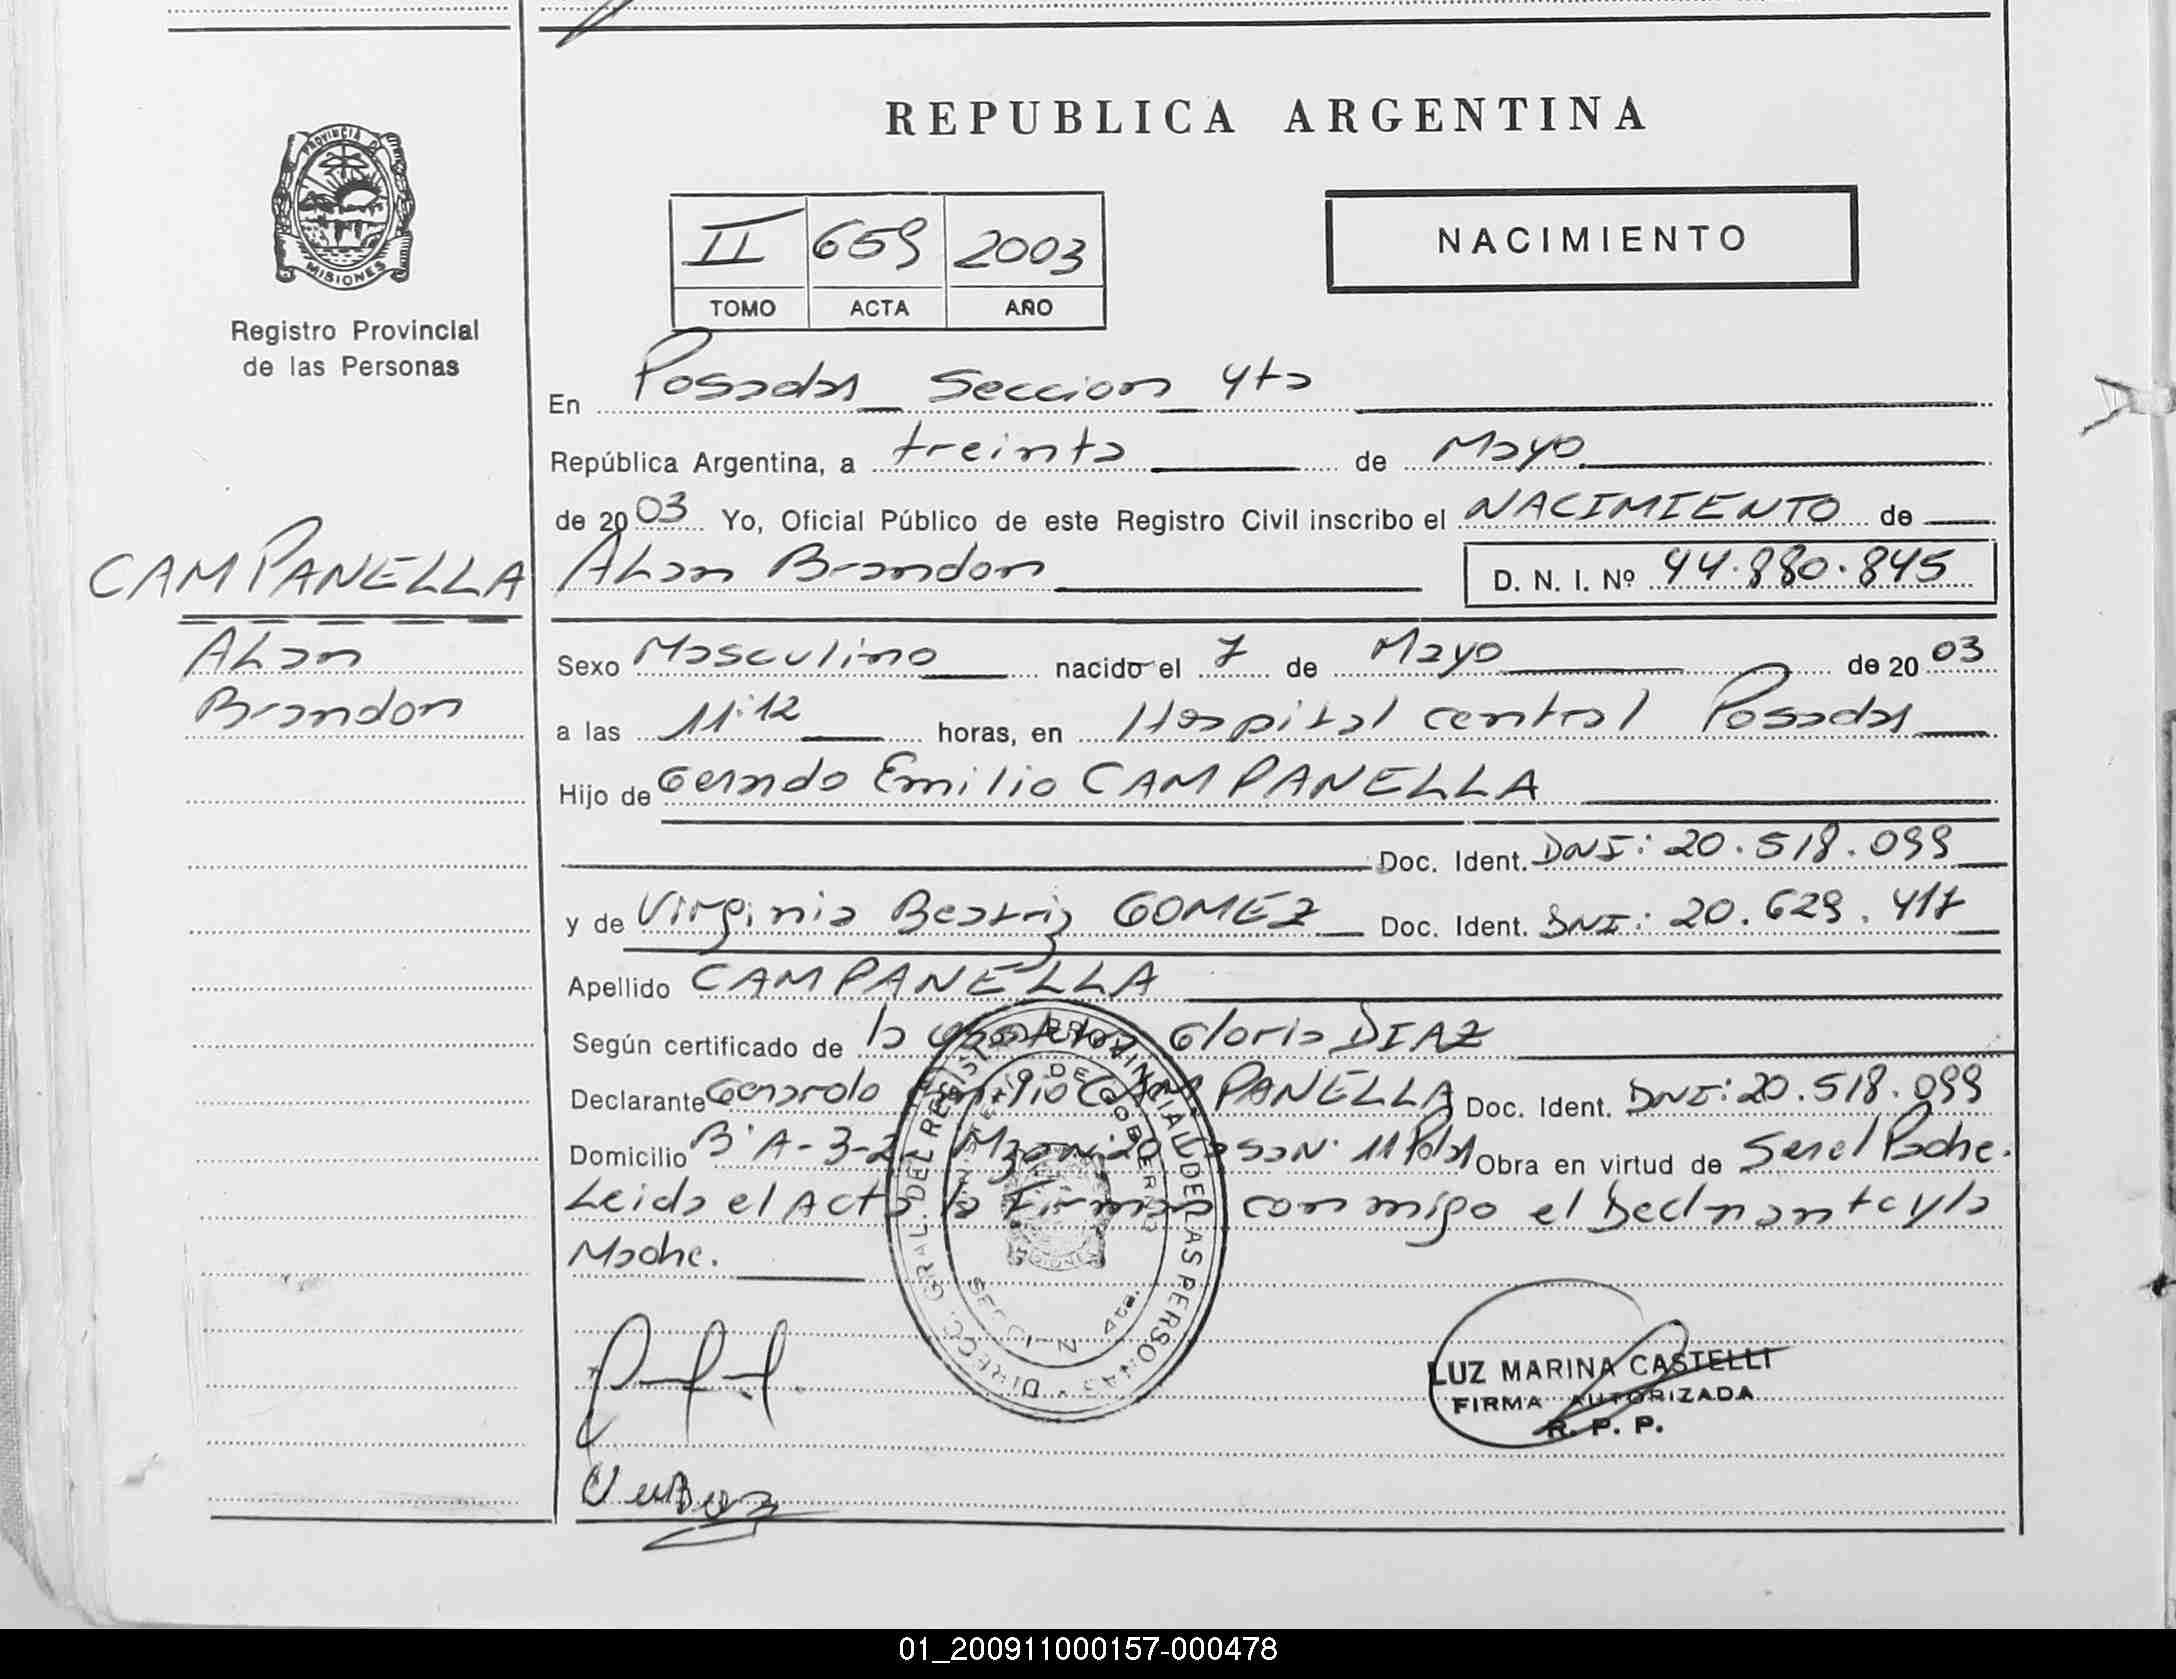 REPUBLICA ARGENTINA
PROVINCIA D MISIONES
Registro Provincial
de las Personas
II 659 2003
TOMO ACTA AÑO
NACIMIENTO
En Posadas Seccion 4ta
República Argentina, a treinta de Mayo
de 2003 Yo, Oficial Público de este Registro Civil inscribo el NACIMIENTO de
CAMPANELLA
Alan
Brandon
Alan Brandon D. N. I. Nº 44.880.845
Sexo Masculino nacido el 7 de Mayo de 2003
a las 11:12 horas, en Hospital central Posadas
Hijo de Gerardo Emilio CAMPANELLA
Doc. Ident. DNI: 20.518.099
y de Virginia Beatriz GOMEZ Doc. Ident. DNI: 20.629.417
Apellido CAMPANELLA
Según certificado de la Gloria DIAZ
Declarante Gerardo Emilio CAMPANELLA Doc. Ident. DNI: 20.518.099
Domicilio B° A-3-2 Mzan: 20 Casa N° 11 Pdas Obra en virtud de Ser el Padre.
Leida el Acta la Firman conmigo el Declarante y la
Madre.
DIRECC. GRAL. DEL REGISTRO PROVINCIAL DE LAS PERSONAS
MINISTERIO DE GOBIERNO
SECCION 4ta.
LUZ MARINA CASTELLI
FIRMA AUTORIZADA
R. P. P.
01_200911000157-000478